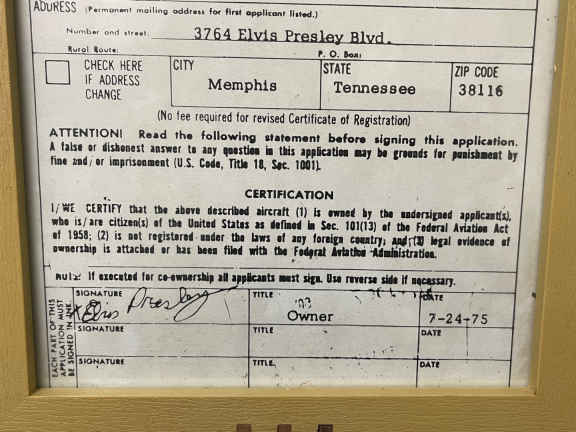 ADDRESS (Permanent mailing address for first applicant listed.)
Number and street: 3764 Elvis Presley Blvd.
Rural Route: P. O. Box:
CHECK HERE IF ADDRESS CHANGE
CITY
Memphis
STATE
Tennessee
ZIP CODE
38116
(No fee required for revised Certificate of Registration)
ATTENTION! Read the following statement before signing this application.
A false or dishonest answer to any question in this application may be grounds for punishment by
fine and/or imprisonment (U.S. Code, Title 18, Sec. 1001).
CERTIFICATION
I/WE CERTIFY that the above described aircraft (1) is owned by the undersigned applicant(s),
who is/are citizen(s) of the United States as defined in Sec. 101(13) of the Federal Aviation Act
of 1958; (2) is not registered under the laws of any foreign country; and (3) legal evidence of
ownership is attached or has been filed with the Federal Aviation Administration.
NOTE: If executed for co-ownership all applicants must sign. Use reverse side if necessary.
EACH PART OF THIS
APPLICATION MUST
BE SIGNED IN INK.
SIGNATURE
Elvis Presley
TITLE
Owner
DATE
7-24-75
SIGNATURE
TITLE
DATE
SIGNATURE
TITLE
DATE